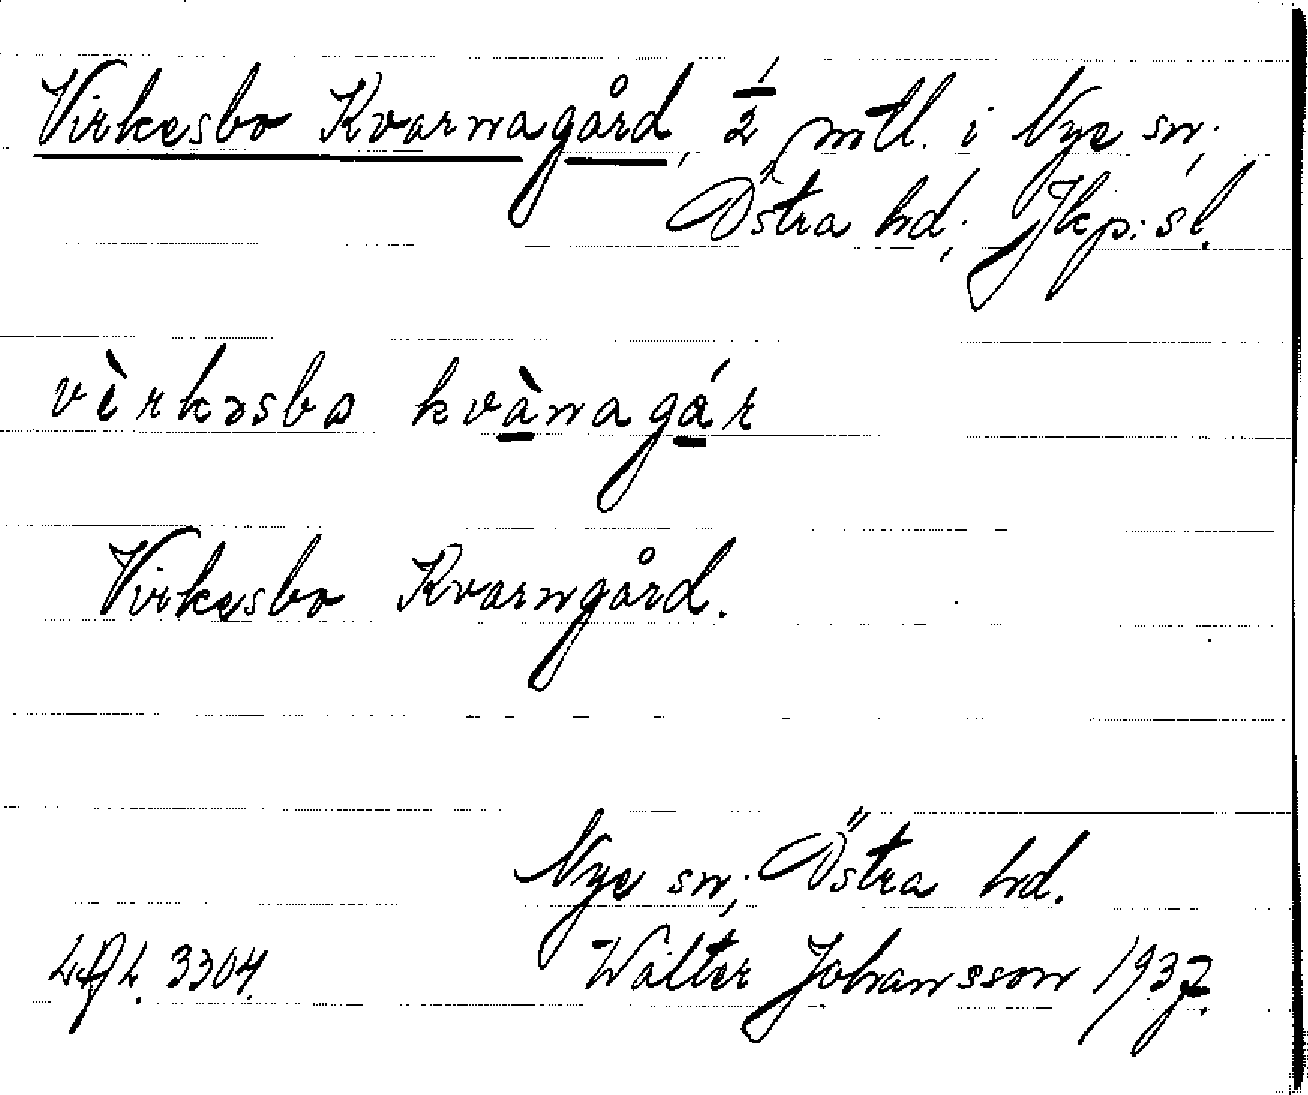 Virkesbo Kvarnagård, 1/2 mtl. i Nye sn;
Östra hd; Jkp:s l.
vìrkəsbo kvànagár
Virkesbo Kvarngård.
Nye sn; Östra hd.
Walter Johansson 1937.
3304.